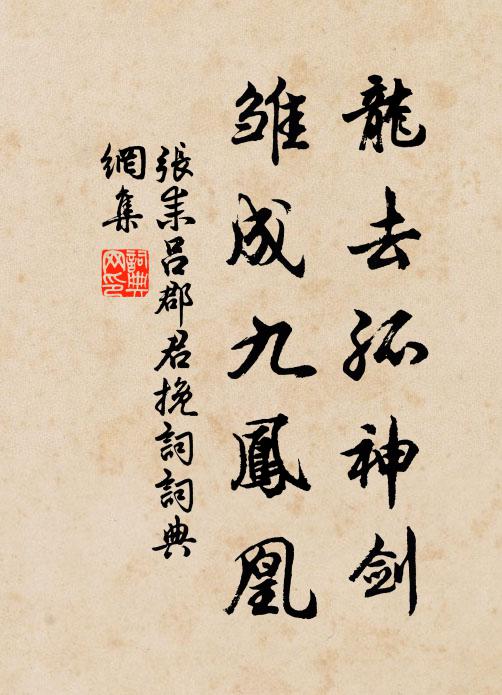 龍去孤神剑
雏成九鳳凰
張耒吕郡君挽詞詞典
網集
詞典
网印